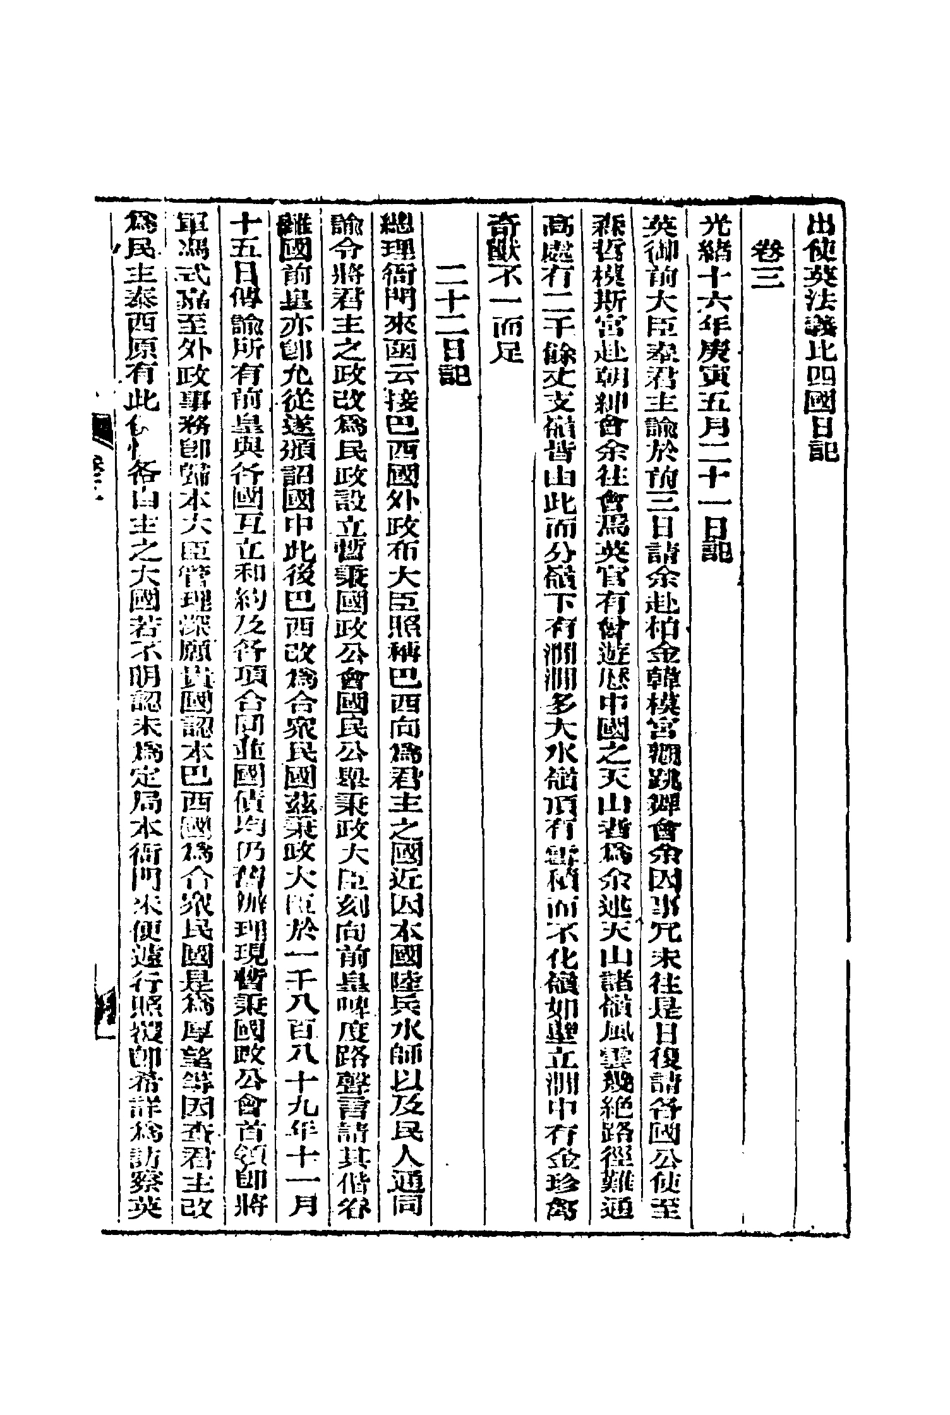 出使英法義比四國日記
卷三
光緒十六年庚寅五月二十一日記
英御前大臣奉君主諭於前三日請余赴柏金韓模宮觀跳舞會余因事冗未往是日復請各國公使至
森哲模斯宮赴朝紳會余往會焉英官有曾遊歷中國之天山者為余述天山諸嶺風雲幾絕路徑難通
高處有二千餘丈支嶺皆由此而分嶺下有澗澗多大水嶺頂有雪積而不化嶺如壁立澗中有金珍禽
奇獸不一而足
二十二日記
總理衙門來函云接巴西國外政布大臣照稱巴西向為君主之國近因本國陸兵水師以及民人通同
諭令將君主之政改為民政設立暫秉國政公會國民公舉秉政大臣刻向前皇啤度路聲書請其偕眷
離國前皇亦卽允從遂頒詔國中此後巴西改為合衆民國茲秉政大臣於一千八百八十九年十一月
十五日傳諭所有前皇與各國互立和約及各項合同並國債均仍舊辦理現暫秉國政公會首領卽將
軍馮式嘉至外政事務卽歸本大臣管理深願貴國認本巴西國為合衆民國是為厚望等因查君主改
為民主泰西原有此各自主之大國若不明認未為定局本衙門未便遽行照覆卽希詳為訪察英